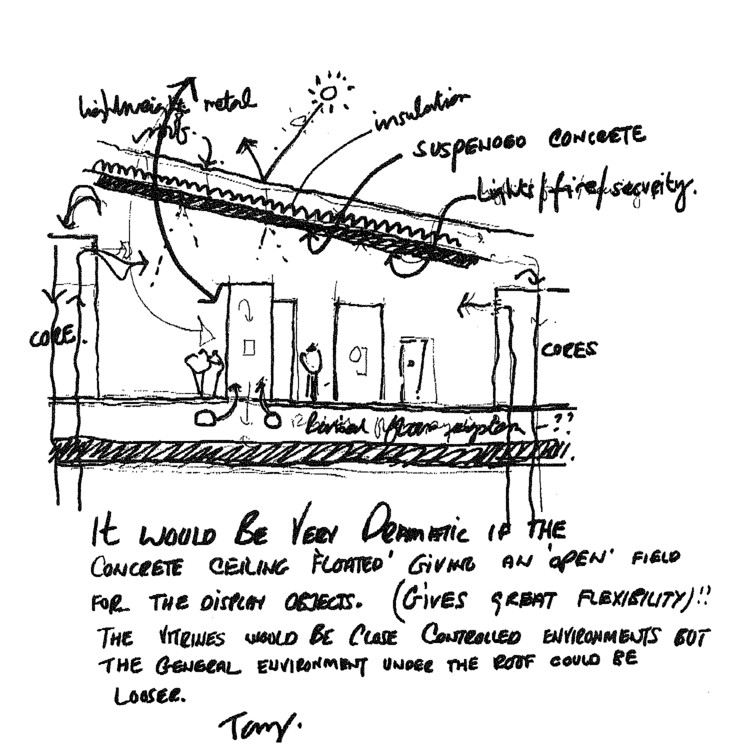 lightweight metal
roof.
insulation
SUSPENDED CONCRETE
Lights/fire/security.
CORE.
CORES
floor system - ??
IT WOULD BE VERY DRAMATIC IF THE
CONCRETE CEILING 'FLOATED' GIVING AN 'OPEN' FIELD
FOR THE DISPLAY OBJECTS. (GIVES GREAT FLEXIBILITY)!!
THE VITRINES WOULD BE CLOSE CONTROLLED ENVIRONMENTS BUT
THE GENERAL ENVIRONMENT UNDER THE ROOF COULD BE
LOOSER.
Tony.